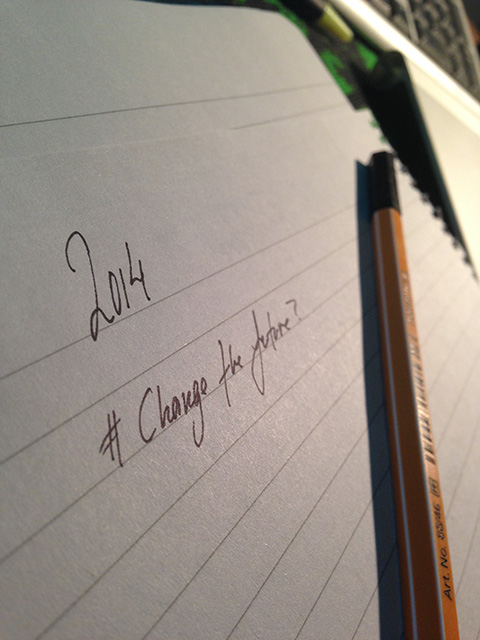 2014
# Change the future?
Art. No. 88/46